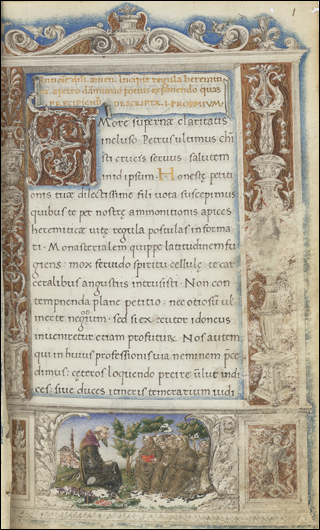 1
In noïe dñi. amen. Incipit regula heremitica
a petro damiano potius exponendo quas
PRECIPIENDO DESCRIPTA. I. PROEMIVM
AMore supernæ claritatis
incluso. Petrus ultimus chri
sti crucis seruus salutem
in id ipsum. Honestę petiti
onis tuæ dilectissime fili uota suscepimus
quibus te per nostrę ammonitionis apices
heremiticæ uitę regula postulas informa
ri. Monasterialem quippe latitudinem fu
giens: mox feruido spiritu cellulę te car
ceralibus angustiis intrusisti. Non con
tempnenda planę petitio: nec otiosũ uł
inerte negocium. sed si exequutor idoneus
inueniretur etiam profuturæ. Nos autem
qui in huius professionis uia neminem prę
dimus: cęteros loquendo preire uelut indi
ces: siue duces itineris temerarium iudi